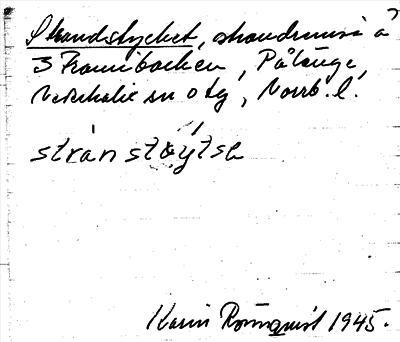 Strandstycket, strandremsa å
3 Framibacken, Pålänge,
Nederkalix sn o tg, Norrb. l.
stránstøýtse
Karin Rönnquist 1945.